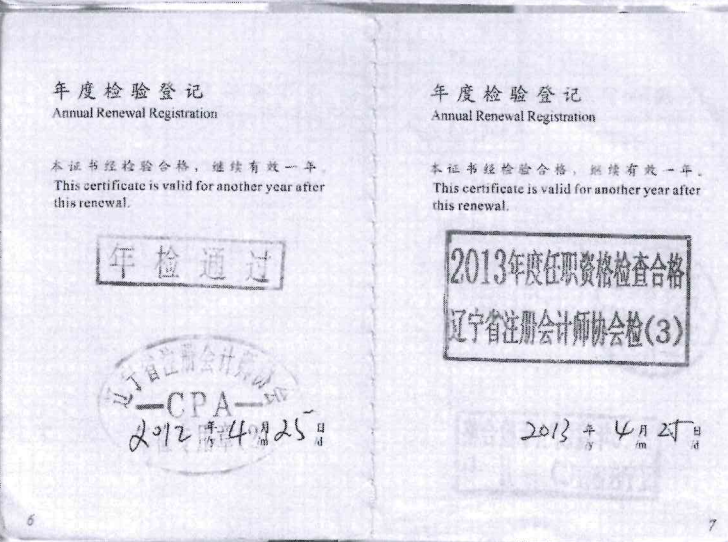 年度检验登记
Annual Renewal Registration
本证书经检验合格，继续有效一年。
This certificate is valid for another year after
this renewal.
年检通过
辽宁省注册会计师协会
CPA
2012 年 4 月 25 日
/y /m /d
6
年度检验登记
Annual Renewal Registration
本证书经检验合格，继续有效一年。
This certificate is valid for another year after
this renewal.
2013年度任职资格检查合格
辽宁省注册会计师协会检(3)
2013 年 4 月 25 日
/y /m /d
7